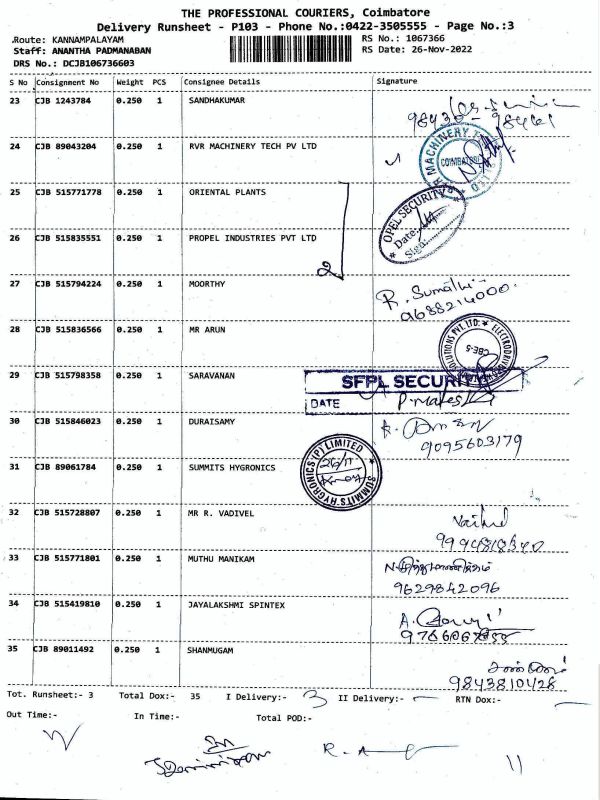 THE PROFESSIONAL COURIERS, Coimbatore
Delivery Runsheet - P103 - Phone No.:0422-3505555 - Page No.:3
Route: KANNAMPALAYAM
RS No.: 1067366
Staff: ANANTHA PADMANABAN
RS Date: 26-Nov-2022
DRS No.: DCJB106736603
S No Consignment No Weight PCS Consignee Details Signature
23 CJB 1243784 0.250 1 SANDHAKUMAR
24 CJB 89043204 0.250 1 RVR MACHINERY TECH PV LTD
COIMBATORE
25 CJB 515771778 0.250 1 ORIENTAL PLANTS
OPEL SECURITY
Date:
Sign:
26 CJB 515835551 0.250 1 PROPEL INDUSTRIES PVT LTD
2
27 CJB 515794224 0.250 1 MOORTHY
R. Sumathi
9688214000
28 CJB 515836566 0.250 1 MR ARUN
CBE-5
29 CJB 515798358 0.250 1 SARAVANAN
SFPL SECURITY
DATE
30 CJB 515846023 0.250 1 DURAISAMY
9095603179
31 CJB 89061784 0.250 1 SUMMITS HYGRONICS
SUMMITS HYGRONICS (P) LIMITED
26/11
32 CJB 515728807 0.250 1 MR R. VADIVEL
9994818340
33 CJB 515771801 0.250 1 MUTHU MANIKAM
N.முத்துமாணிக்கம்
9629842096
34 CJB 515419810 0.250 1 JAYALAKSHMI SPINTEX
35 CJB 89011492 0.250 1 SHANMUGAM
9843810428
Tot. Runsheet:- 3 Total Dox:- 35 I Delivery:- 3 II Delivery:- RTN Dox:-
Out Time:- In Time:- Total POD:-